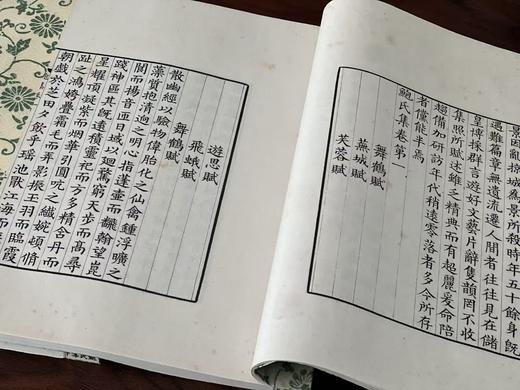 景因亂為景所殺時年五十餘身既
遇難篇章無遺流遷人間者往往見在儲
皇博採群言遊好文藝片辭隻韻罔不收
集照所賦述雖乏精典而有超麗爰命陪
趨備加研訪年代稍遠零落者多今所存
者儻能半焉
鮑氏集卷第一
舞鶴賦
蕪城賦
芙蓉賦
遊思賦
飛蛾賦
舞鶴賦
散幽經以驗物偉胎化之仙禽鍾浮曠之
藻質抱清迥之明心指蓬壺而翻翰望崑
閬而揚音匝日域以迴騖窮天步而高尋
踐神區其既遠積靈祀而方多精含丹而
星耀頂凝紫而烟華引圓吭之纖婉頓脩
趾之鴻姱疊霜毛而弄影振玉羽而臨霞
朝戲於芝田夕飲乎瑤池厭江海而